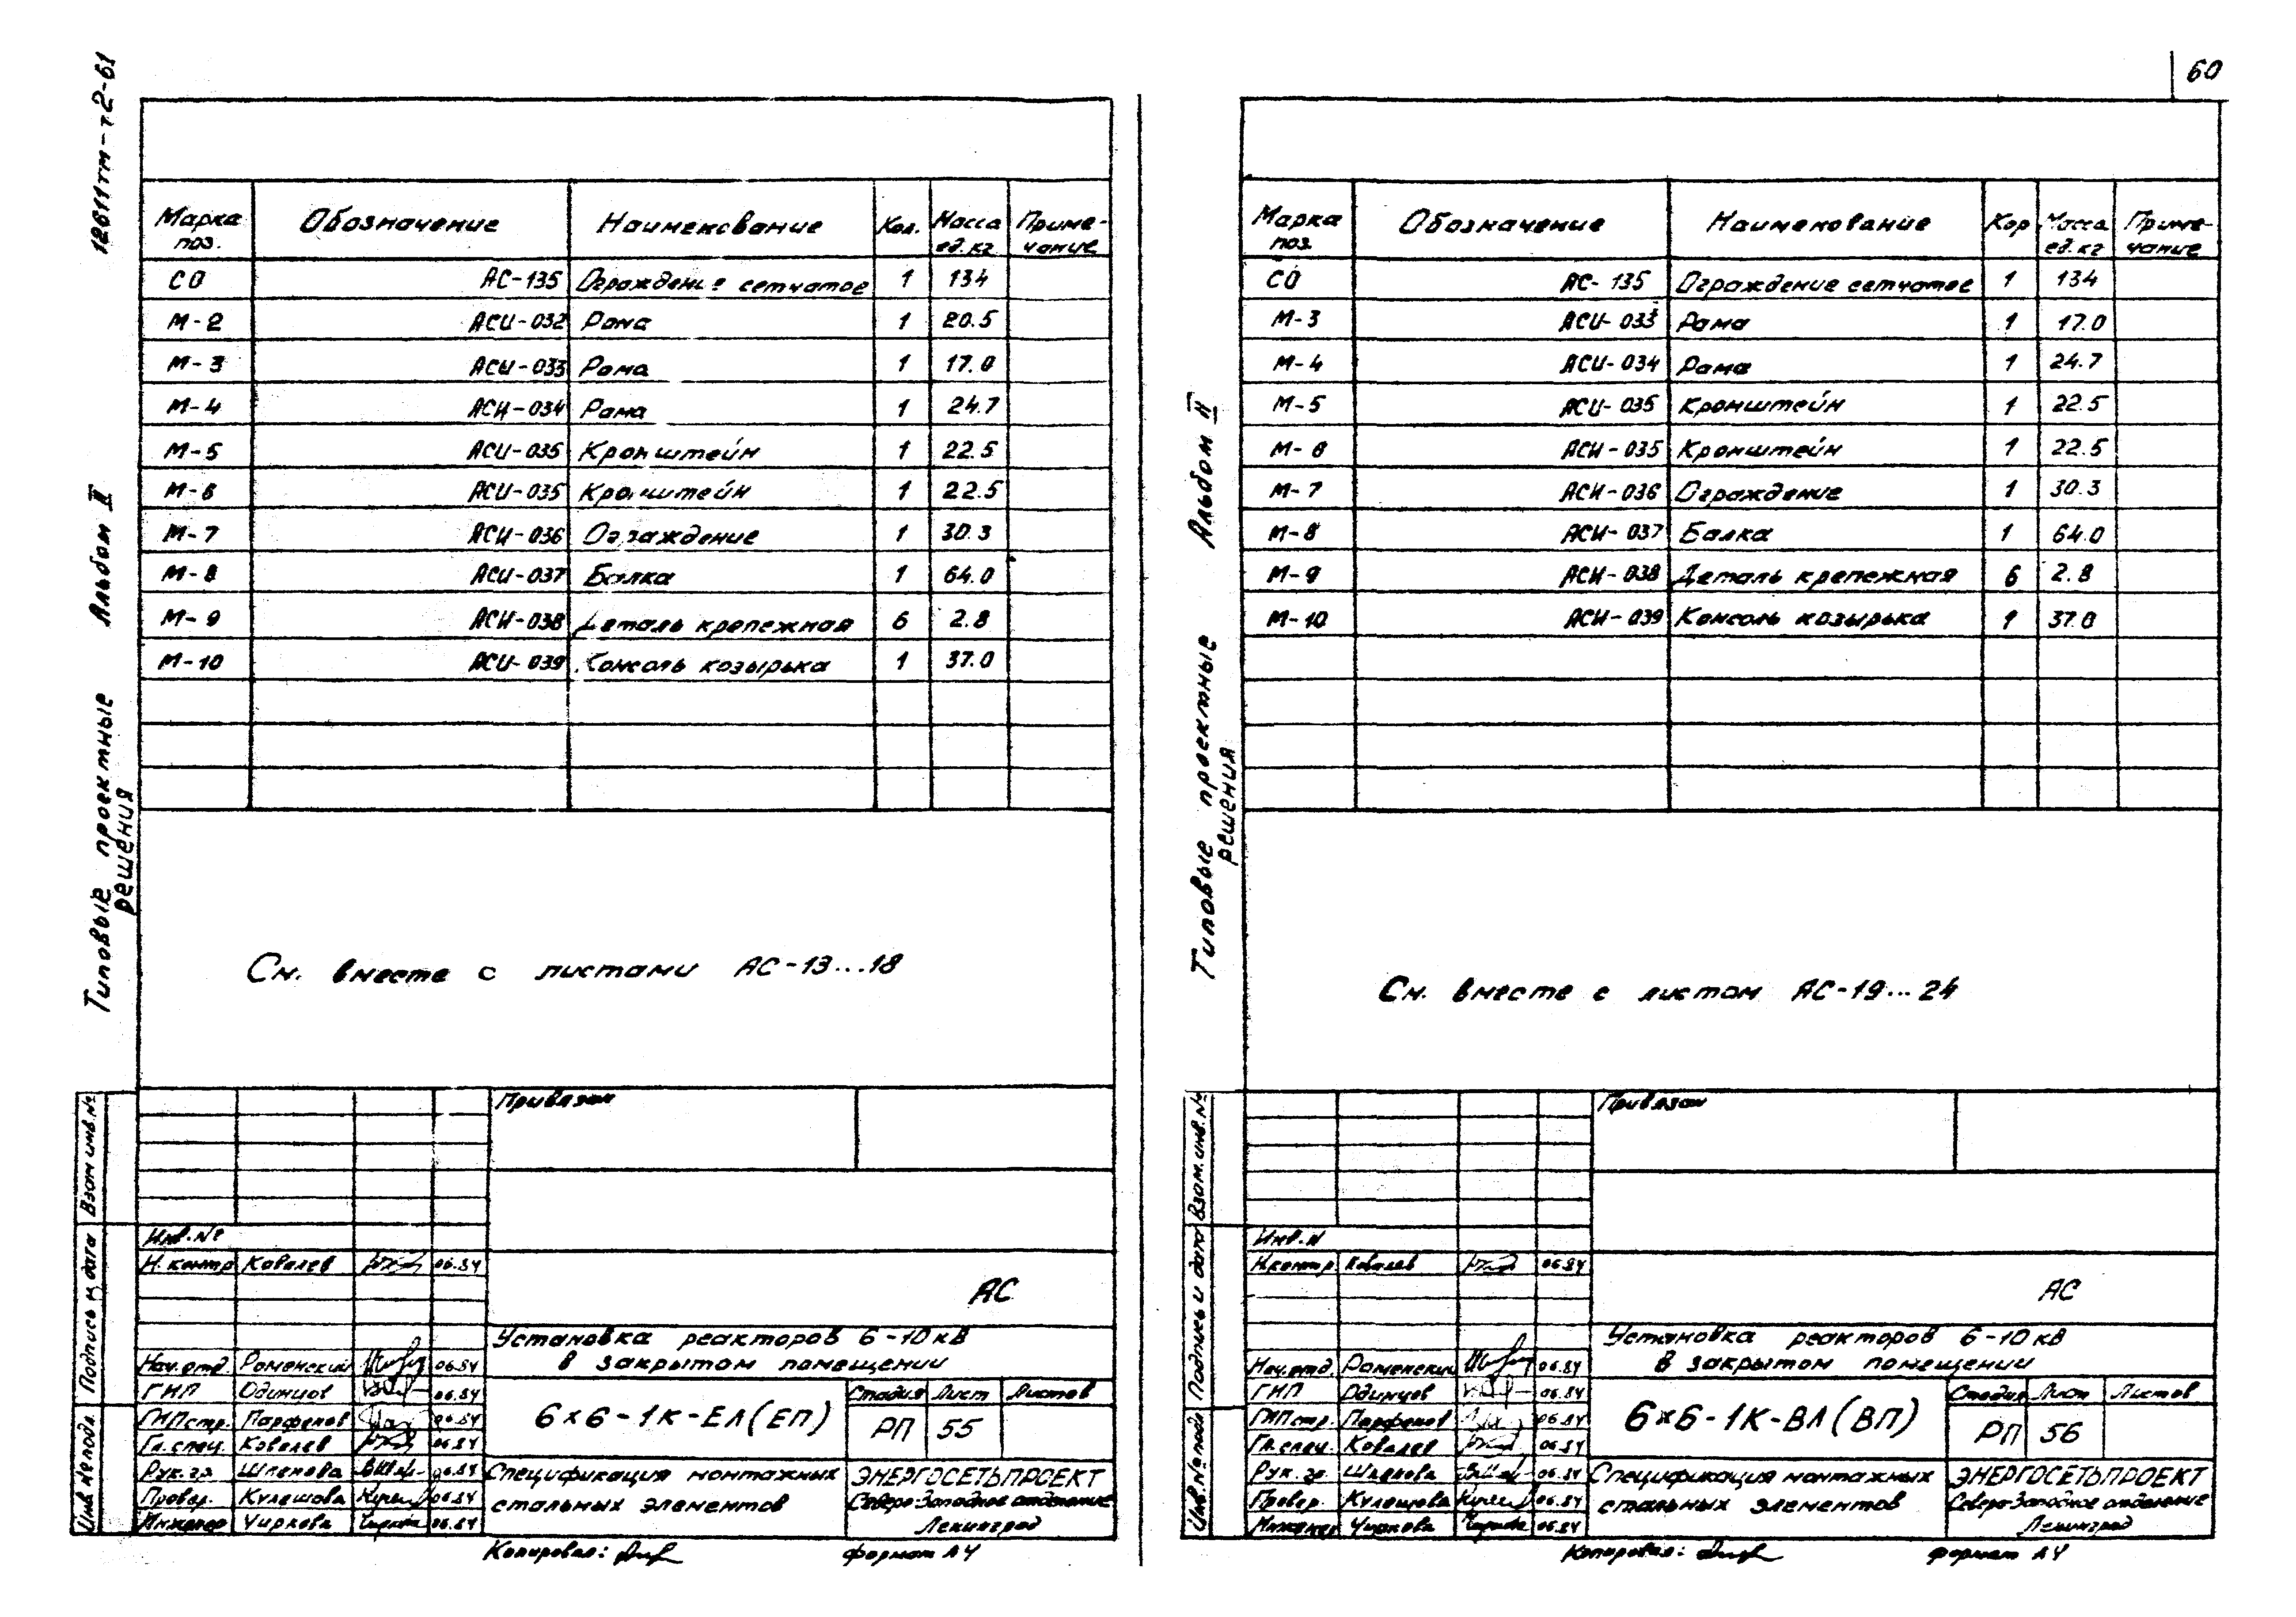 60
12611тм-т2-61
Альбом II
Типовые проектные решения
Марка поз. Обозначение Наименование Кол. Масса ед.кг Приме-чание
СО АС-135 Ограждение сетчатое 1 134
М-2 АСИ-032 Рама 1 20.5
М-3 АСИ-033 Рама 1 17.0
М-4 АСИ-034 Рама 1 24.7
М-5 АСИ-035 Кронштейн 1 22.5
М-6 АСИ-035 Кронштейн 1 22.5
М-7 АСИ-036 Ограждение 1 30.3
М-8 АСИ-037 Балка 1 64.0
М-9 АСИ-038 Деталь крепежная 6 2.8
М-10 АСИ-039 Консоль козырька 1 37.0
См. вместе с листами АС-13...18
Привязан
Взам инв.№
Подпись и дата
Инв №подл.
Инв.№
Н.контр Ковалев 06.84
АС
Установка реакторов 6-10кВ
в закрытом помещении
Нач.отд. Роменский 06.84
ГИП Одинцов 06.84
ГИПстр. Парфенов 06.84
Гл.спец. Ковалев 06.84
Рук.гр Шленова 06.84
Провер. Кулешова 06.84
Инженер Чиркова 06.84
6×6-1К-ЕЛ(ЕП)
Стадия Лист Листов
РП 55
Спецификация монтажных
стальных элементов
ЭНЕРГОСЕТЬПРОЕКТ
Северо-Западное отделение
Ленинград
Копировал: формат А4
Альбом II
Типовые проектные решения
Марка поз. Обозначение Наименование Кор Масса ед.кг Приме-чание
СО АС-135 Ограждение сетчатое 1 134
М-3 АСИ-033 Рама 1 17.0
М-4 АСИ-034 Рама 1 24.7
М-5 АСИ-035 Кронштейн 1 22.5
М-6 АСИ-035 Кронштейн 1 22.5
М-7 АСИ-036 Ограждение 1 30.3
М-8 АСИ-037 Балка 1 64.0
М-9 АСИ-038 Деталь крепежная 6 2.8
М-10 АСИ-039 Консоль козырька 1 37.0
См. вместе с листом АС-19...24
Привязан
Взам.инв.№
Подпись и дата
Инв.№подл
Инв.N
Н.контр. Ковалев 06.84
АС
Установка реакторов 6-10кВ
в закрытом помещении
Нач.отд. Роменский 06.84
ГИП Одинцов 06.84
ГИПстр. Парфенов 06.84
Гл.спец. Ковалев 06.84
Рук.гр. Шленова 06.84
Провер. Кулешова 06.84
Инженер Чиркова 06.84
6×6-1К-ВЛ(ВП)
Стадия Лист Листов
РП 56
Спецификация монтажных
стальных элементов
ЭНЕРГОСЕТЬПРОЕКТ
Северо-Западное отделение
Ленинград
Копировал: формат А4